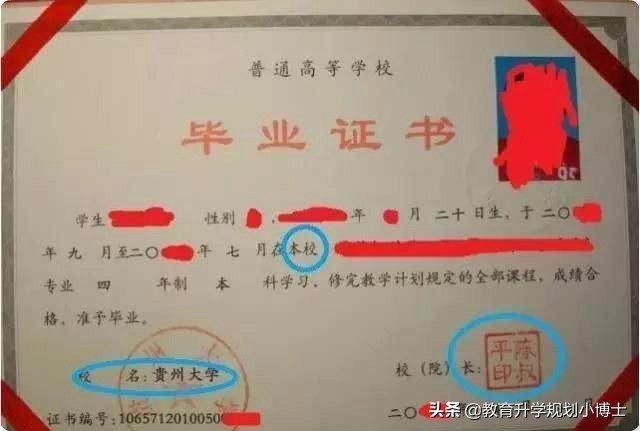 普通高等学校
毕业证书
学生 性别 , 年 月二十日生，于二〇
年九月至二〇 年七月在本校
专业四年制本科学习，修完教学计划规定的全部课程，成绩合
格，准予毕业。
校名：贵州大学
校（院）长：
陈叔平印
证书编号：1065712010050
二〇 月
头条 @教育升学规划小博士